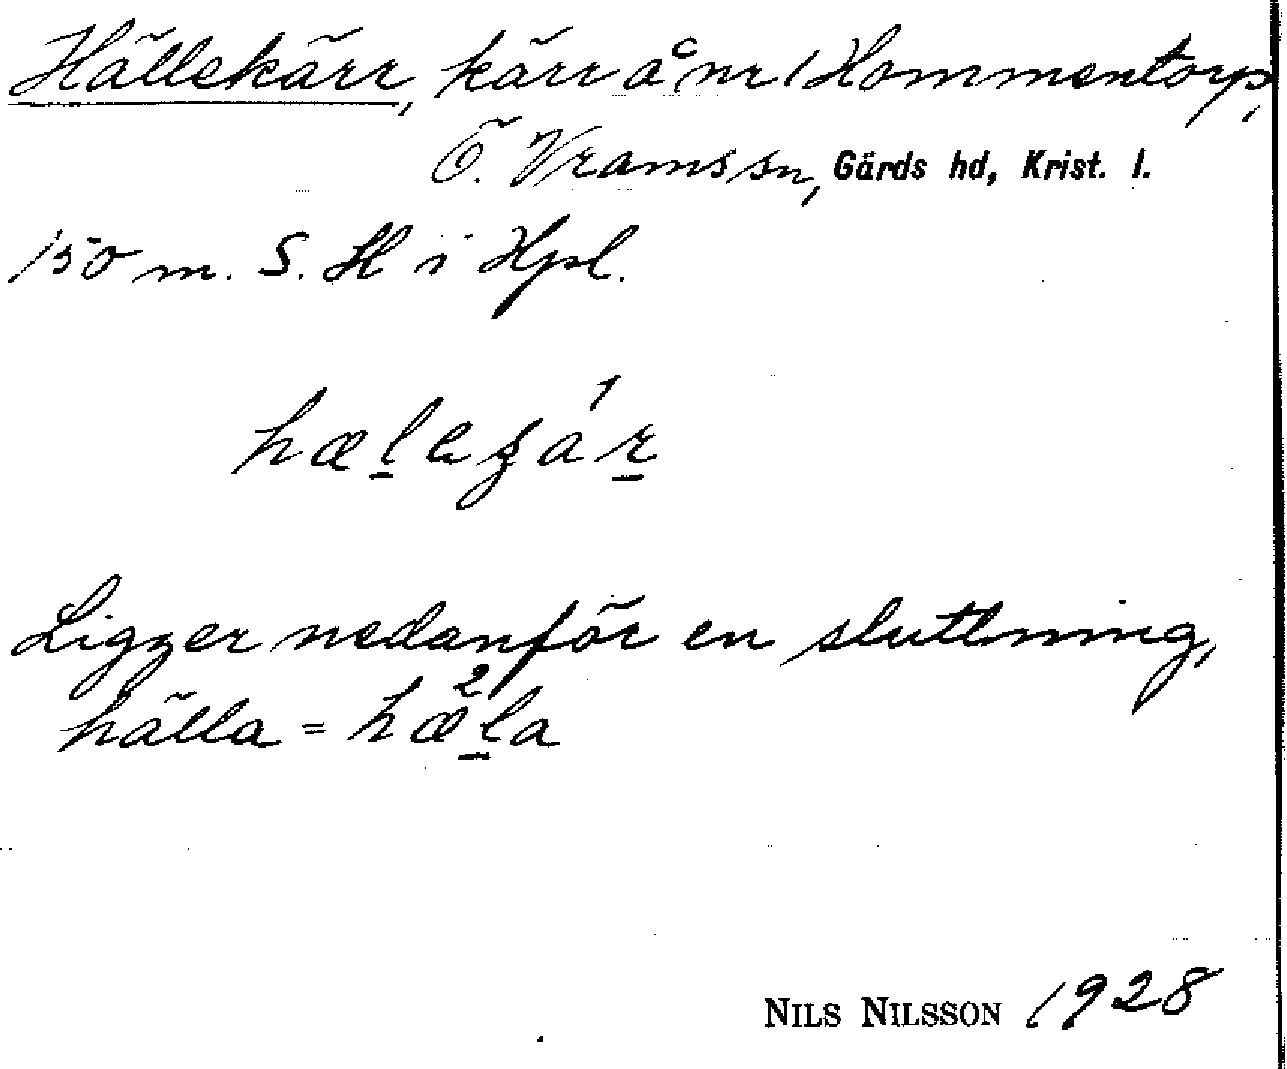 Hällekärr, kärr å nr 1 Hommentorp,
Ö. Vrams sn, Gärds hd, Krist. l.
150 m. S. H i Hpl.
hælaʒá́r
Ligger nedanför en sluttning,
hälla = hæ²la
NILS NILSSON 1928